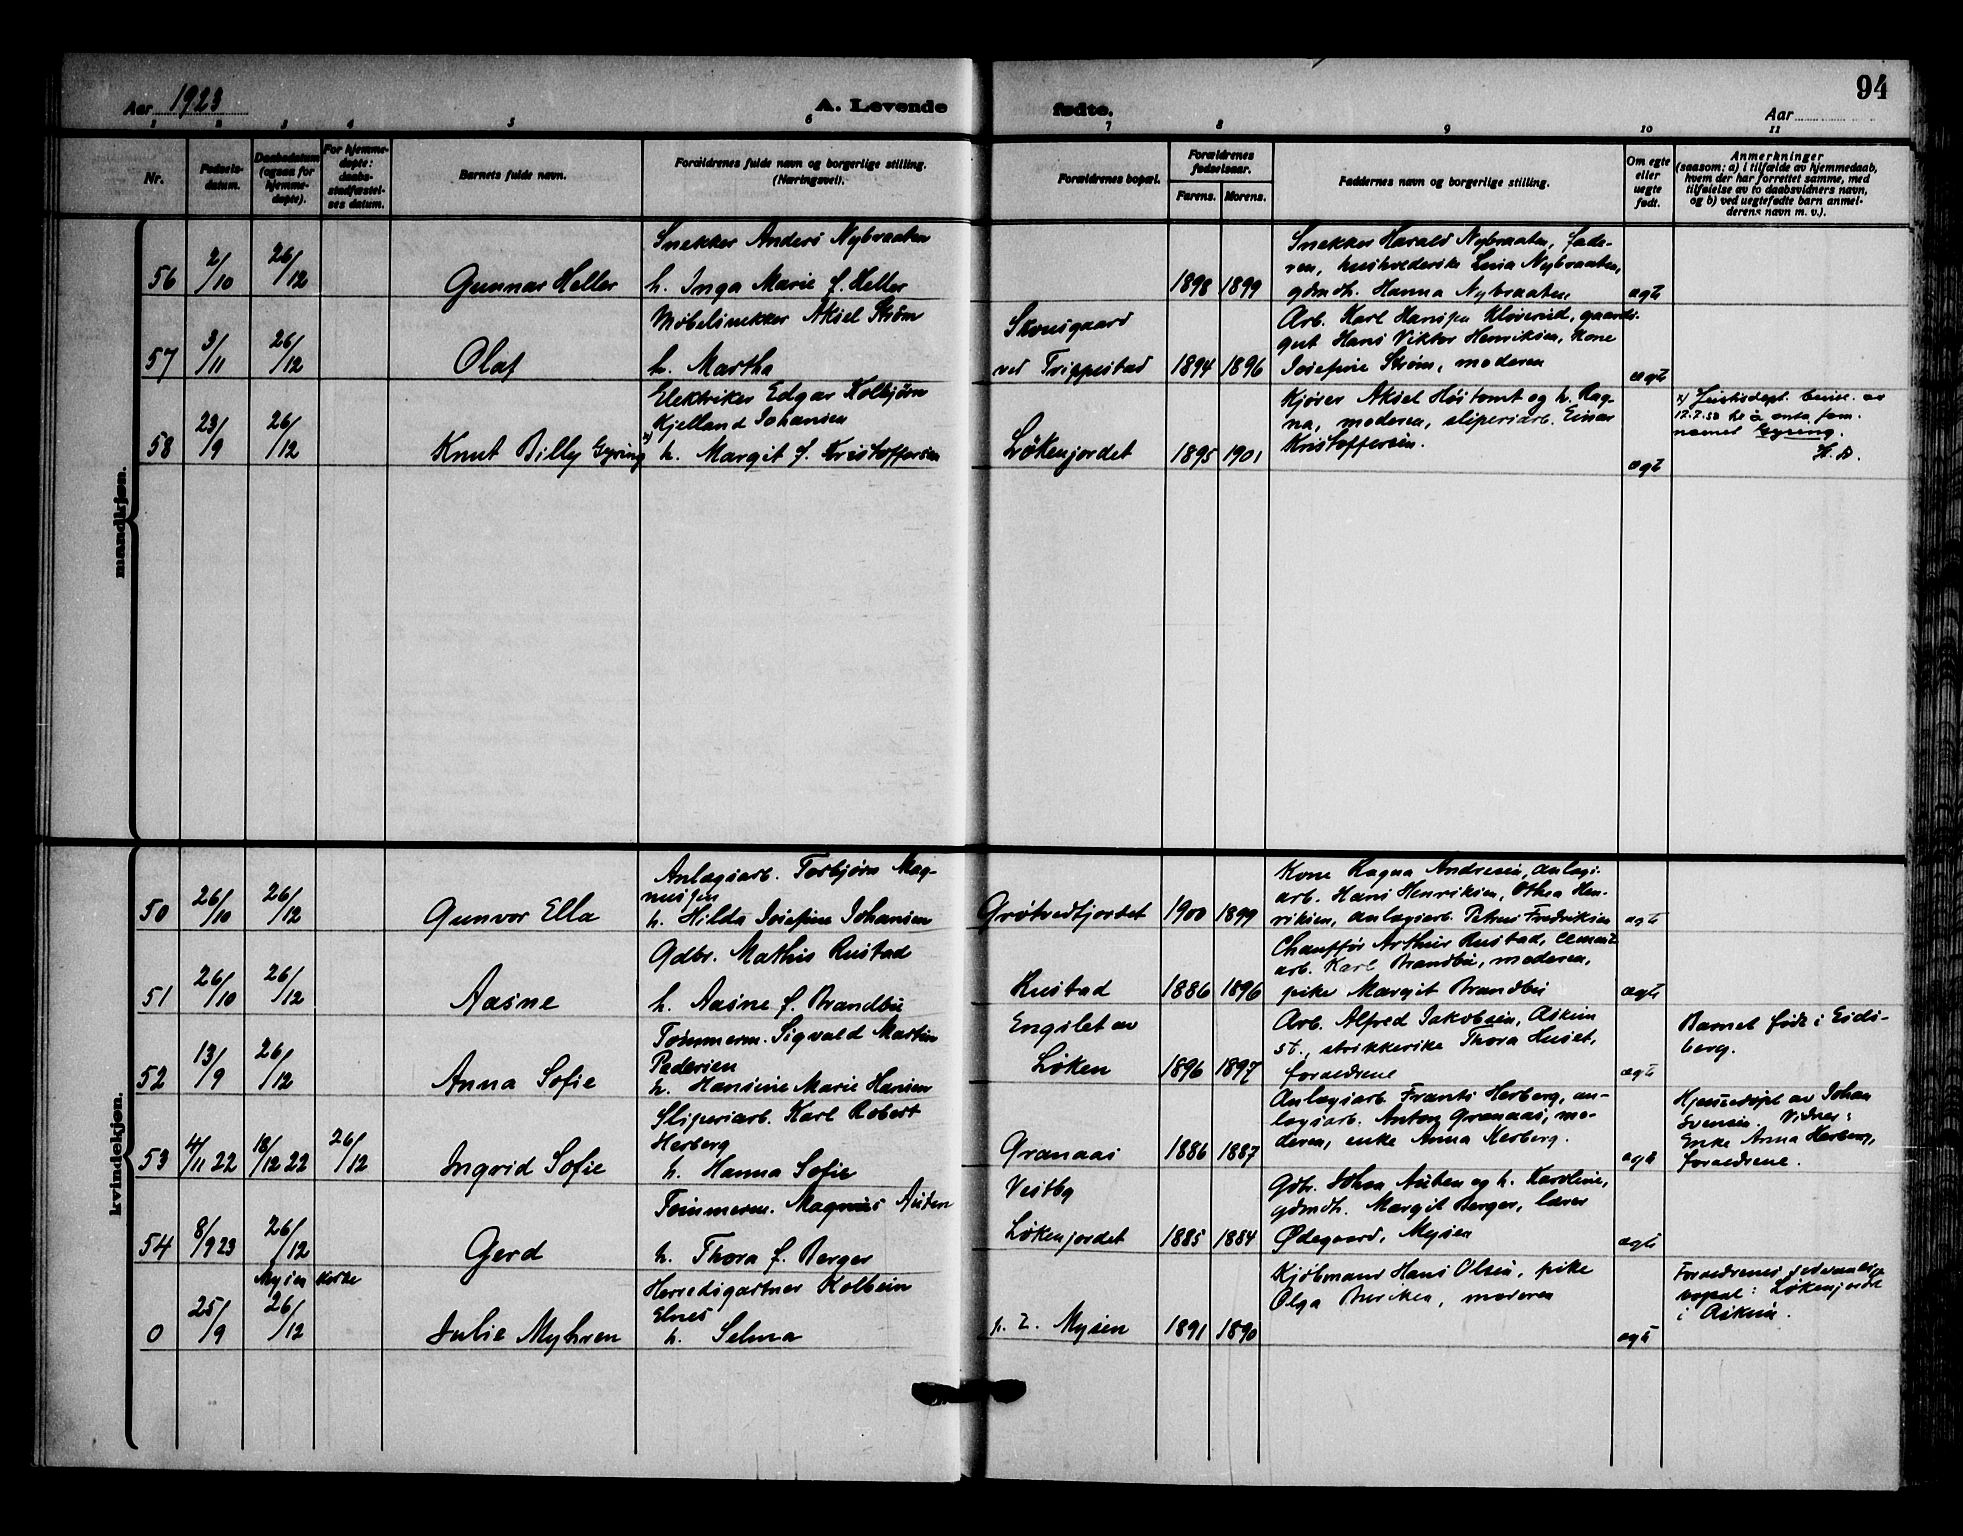 94
Aar 1923
A. Levende
fødte.
Aar
1 2 3 4 5 6 7 8 9 10 11
Nr.
Fødsels-
datum.
Daabsdatum
(ogsaa for
hjemme-
døpte).
For hjemme-
døpte:
daabs-
stadfæstel-
ses datum.
Barnets fulde navn.
Forældrenes fulde navn og borgerlige stilling.
(Næringsvei).
Forældrenes bopæl.
Forældrenes
fødselsaar.
Farens. Morens.
Faddernes navn og borgerlige stilling.
Om egte
eller
uegte
født.
Anmerkninger
(saasom: a) i tilfælde av hjemmedaab,
hvem der har forrettet samme, med
tilføielse av to daabsvidners navn,
og b) ved uegtefødte barn anmel-
derens navn m. v.).
mandkjøn.
56 2/10 26/12 Gunnar Heller
Snekker Anders Nybraaten
h. Inga Marie f. Heller
1898 1899
Snekker Harald Nybraaten, fade-
ren, husholderske Lina Nybraaten,
gdmdh. Hanna Nybraaten
egte
57 3/11 26/12 Olaf
Møbelsnekker Aksel Strøm
h. Martha
Skonsgaard
ved Trippestad
1894 1896
Arb. Karl Hansen Kløverud, gaards-
gut Hans Viktor Henriksen, Kone
Josefine Strøm, moderen
egte
58 23/9 26/12 Knut Billy Gyring x)
Elektriker Edgar Kolbjørn
Kjelland Johansen
h. Margit f. Kristoffersen
Løkenjordet
1895 1901
Kjører Aksel Høitomt og h. Rag-
na, moderen, sliperiarb. Einar
Kristoffersen.
egte
x) Justisdept. bevilg. av
17.7.53 til å anta fam.
navnet Gyring.
kvindekjøn.
50 26/10 26/12 Gunvor Ella
Anlægsarb. Torbjørn Mag-
nussen
h. Hilda Josefine Johansen
Grøtvedtjordet
1900 1899
Kone Ragna Andresen, anlægs-
arb. Hans Henriksen, Othea Hen-
riksen, anlægsarb. Petrus Fredriksen
egte
51 26/10 26/12 Aasne
Gdbr. Mathis Rustad
h. Aasne f. Brandbu
Rustad
1886 1896
Chauffør Arthur Rustad, cement-
arb. Karl Brandbu, moderen,
pike Margit Brandbu
egte
52 13/9 26/12 Anna Sofie
Tømmerm. Sigvald Martin
Pedersen
h. Hansine Marie Hansen
Engslet av
Løken
1896 1897
Arb. Alfred Jakobsen, Askim
st., strikkerske Thora Huset,
forældrene
egte
Barnet født i Eids-
berg.
53 4/11 22 18/12 22 26/12 Ingrid Sofie
Sliperiarb. Karl Robert
Herberg
h. Hanna Sofie
Granaas
1886 1887
Anlægsarb. Frants Herberg, an-
lægsarb. Anton Granaas, mo-
deren, enke Anna Herberg.
egte
Hjemmedøpt av Johan
Svensen. Vidner:
Enke Anna Herberg,
forældrene.
54 8/9 23 26/12 Gerd
Tømmerm. Magnus Austen
h. Thora f. Berger
Vestby
Løkenjordet
1885 1884
Gdbr. Johan Austen og h. Karoline,
gdmdh. Margit Berger, lærer
Ødegaard, Mysen
egte
0 25/9 Mysen kirke 26/12 Julie Myhren
Herredsgartner Kolbein
Elnes
h. Selma
p. t. Mysen
1891 1890
Kjøbmand Hans Olsen, pike
Olga, moderen
egte
Forældrenes sedvanlige
bopæl: Løkenjordet
i Askim.